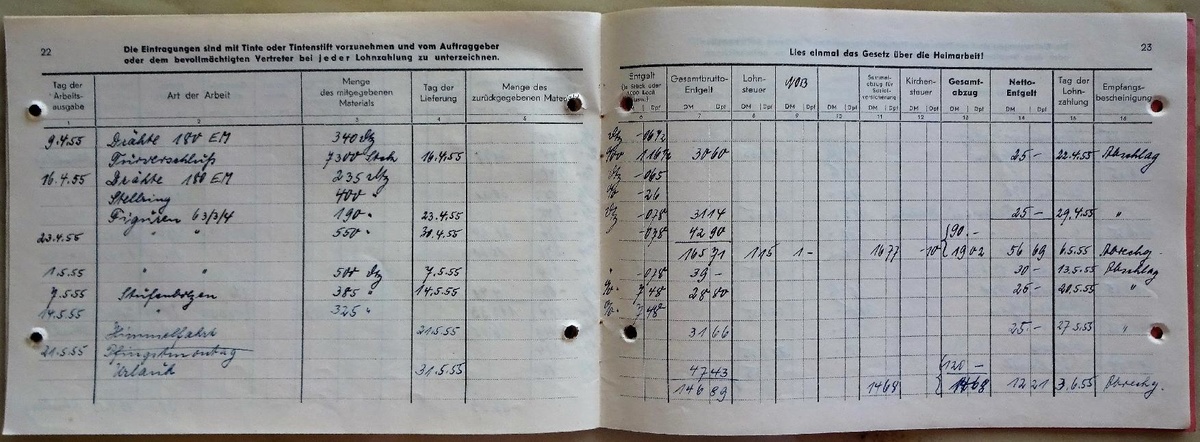 22
Die Eintragungen sind mit Tinte oder Tintenstift vorzunehmen und vom Auftraggeber
oder dem bevollmächtigten Vertreter bei jeder Lohnzahlung zu unterzeichnen.
Tag der Arbeits-ausgabe Art der Arbeit Menge des mitgegebenen Materials Tag der Lieferung Menge des zurückgegebenen Materials
1 2 3 4 5
9.4.55 Drähte 180 EM 340
Türverschluß 7300 Stck 16.4.55
16.4.55 Drähte 180 EM 235
Stellring 400 "
Figuren 63/3/4 190 " 23.4.55
23.4.55 " " 550 " 30.4.55
1.5.55 " " 500 7.5.55
7.5.55 Stufenbolzen 385 " 14.5.55
14.5.55 " 325 "
Himmelfahrt 21.5.55
21.5.55 Pfingstmontag
Urlaub 31.5.55
23
Lies einmal das Gesetz über die Heimarbeit!
Entgelt Gesamtbrutto-Entgelt Lohn-steuer Kirchen-steuer Gesamt-abzug Netto-Entgelt Tag der Lohn-zahlung Empfangs-bescheinigung
DM Dpf DM Dpf DM Dpf DM Dpf DM Dpf DM Dpf
6 7 8 9 10 11 12 13 14 15 16
30 60 25 - 22.4.55 Abschlag
-065
-26
-078 31 14 25 - 29.4.55 "
-078 42 90 90.-
165 71 1 15 1 - 16 77 -10 19 02 56 69 6.5.55 Abrechg.
" -078 39 - 30 - 13.5.55 Abschlag
7 48 28 80 25 - 20.5.55 "
7 48
31 66 25 - 27.5.55 "
120 -
47 43
146 89 14 68 14 68 12 21 3.6.55 Abrechg.